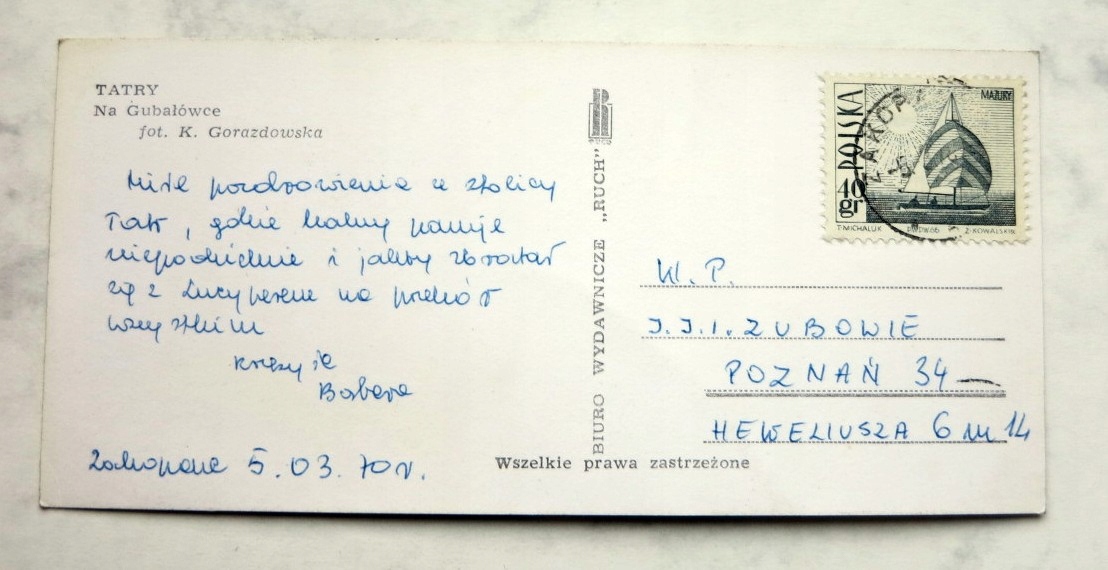 TATRY
Na Gubałówce
fot. K. Gorazdowska
Miłe pozdrowienia ze stolicy
Tatr, gdzie halny panuje
niepodzielnie i jakby zbratał
się z Lucyperem na przekór
wszystkim
Krzysie
Barbara
Zakopane 5.03.70 r.
BIURO WYDAWNICZE „RUCH"
RUCH
Wszelkie prawa zastrzeżone
POLSKA
MAZURY
40
gr
T. MICHALUK P.W.P.W. 66 Z. KOWALSKI
ZAKOPA
W. P.
J. J. I. ZUBOWIE
POZNAŃ 34
HEWELIUSZA 6 m 14